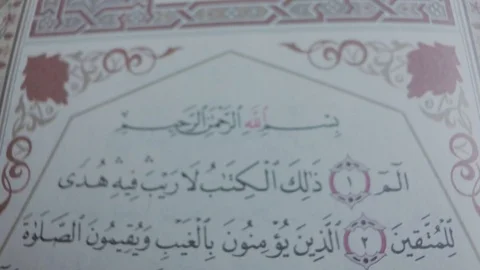 بِسْمِ ٱللَّهِ ٱلرَّحْمَٰنِ ٱلرَّحِيمِ
الٓمٓ ١ ذَٰلِكَ ٱلْكِتَٰبُ لَا رَيْبَۛ فِيهِۛ هُدًى
لِّلْمُتَّقِينَ ٢ ٱلَّذِينَ يُؤْمِنُونَ بِٱلْغَيْبِ وَيُقِيمُونَ ٱلصَّلَوٰةَ